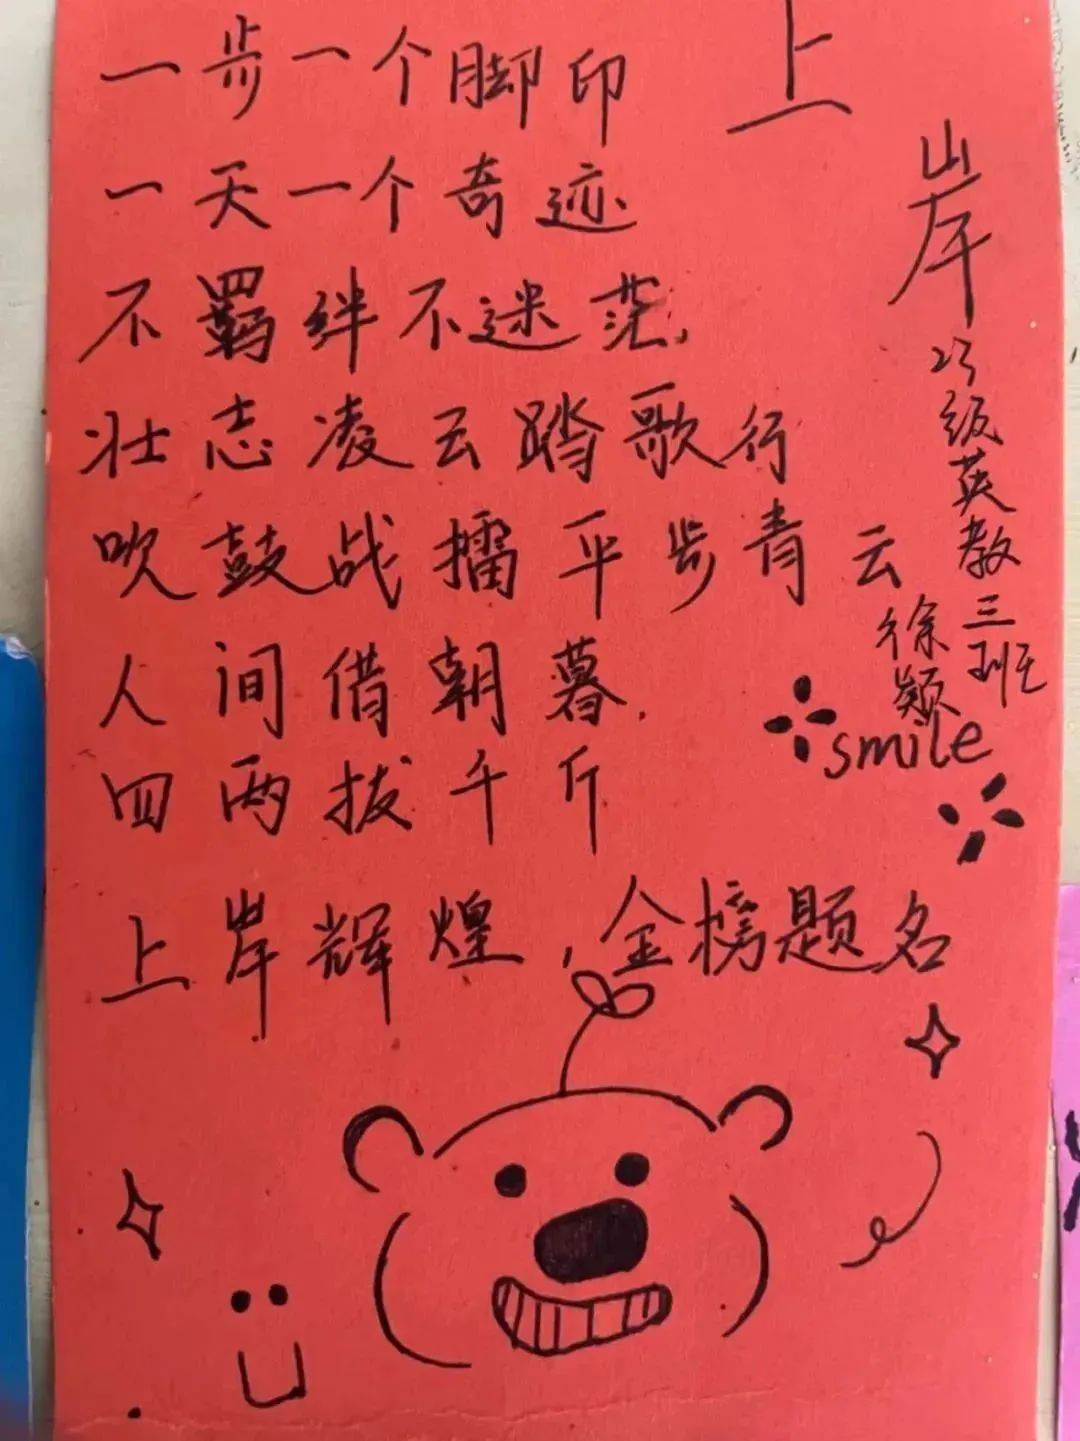 一步一个脚印
一天一个奇迹
不羁绊不迷茫,
壮志凌云踏歌行
吹鼓战擂平步青云
人间借朝暮,
四两拔千斤
上岸辉煌,金榜题名
上岸
23级英教三班
徐颖
smile